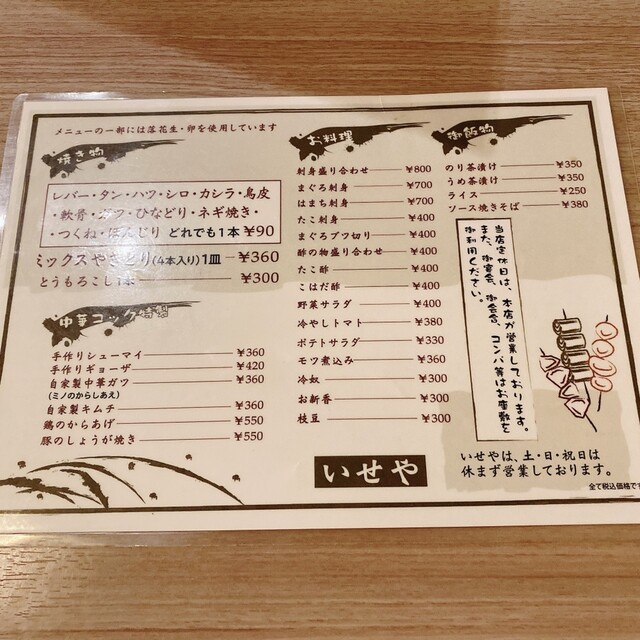 メニューの一部には落花生・卵を使用しています
焼き物
レバー・タン・ハツ・シロ・カシラ・鳥皮
・軟骨・ガツ・ひなどり・ネギ焼き・
・つくね・ぼんじり どれでも1本 ¥90
ミックスやきとり(4本入り)1皿 ¥360
とうもろこし1本 ¥300
中華コック特製
手作りシューマイ ¥360
手作りギョーザ ¥420
自家製中華ガツ ¥360
(ミノのからしあえ)
自家製キムチ ¥360
鶏のからあげ ¥550
豚のしょうが焼き ¥550
お料理
刺身盛り合わせ ¥800
まぐろ刺身 ¥700
はまち刺身 ¥700
たこ刺身 ¥400
まぐろブツ切り ¥400
酢の物盛り合わせ ¥400
たこ酢 ¥400
こはだ酢 ¥400
野菜サラダ ¥400
冷やしトマト ¥380
ポテトサラダ ¥330
モツ煮込み ¥360
冷奴 ¥300
お新香 ¥300
枝豆 ¥300
いせや
御飯物
のり茶漬け ¥350
うめ茶漬け ¥350
ライス ¥250
ソース焼きそば ¥380
当店定休日は、本店が営業しております。
また、御宴会、御会合、コンパ等はお座敷を
御利用ください。
いせやは、土・日・祝日は
休まず営業しております。
全て税込価格です